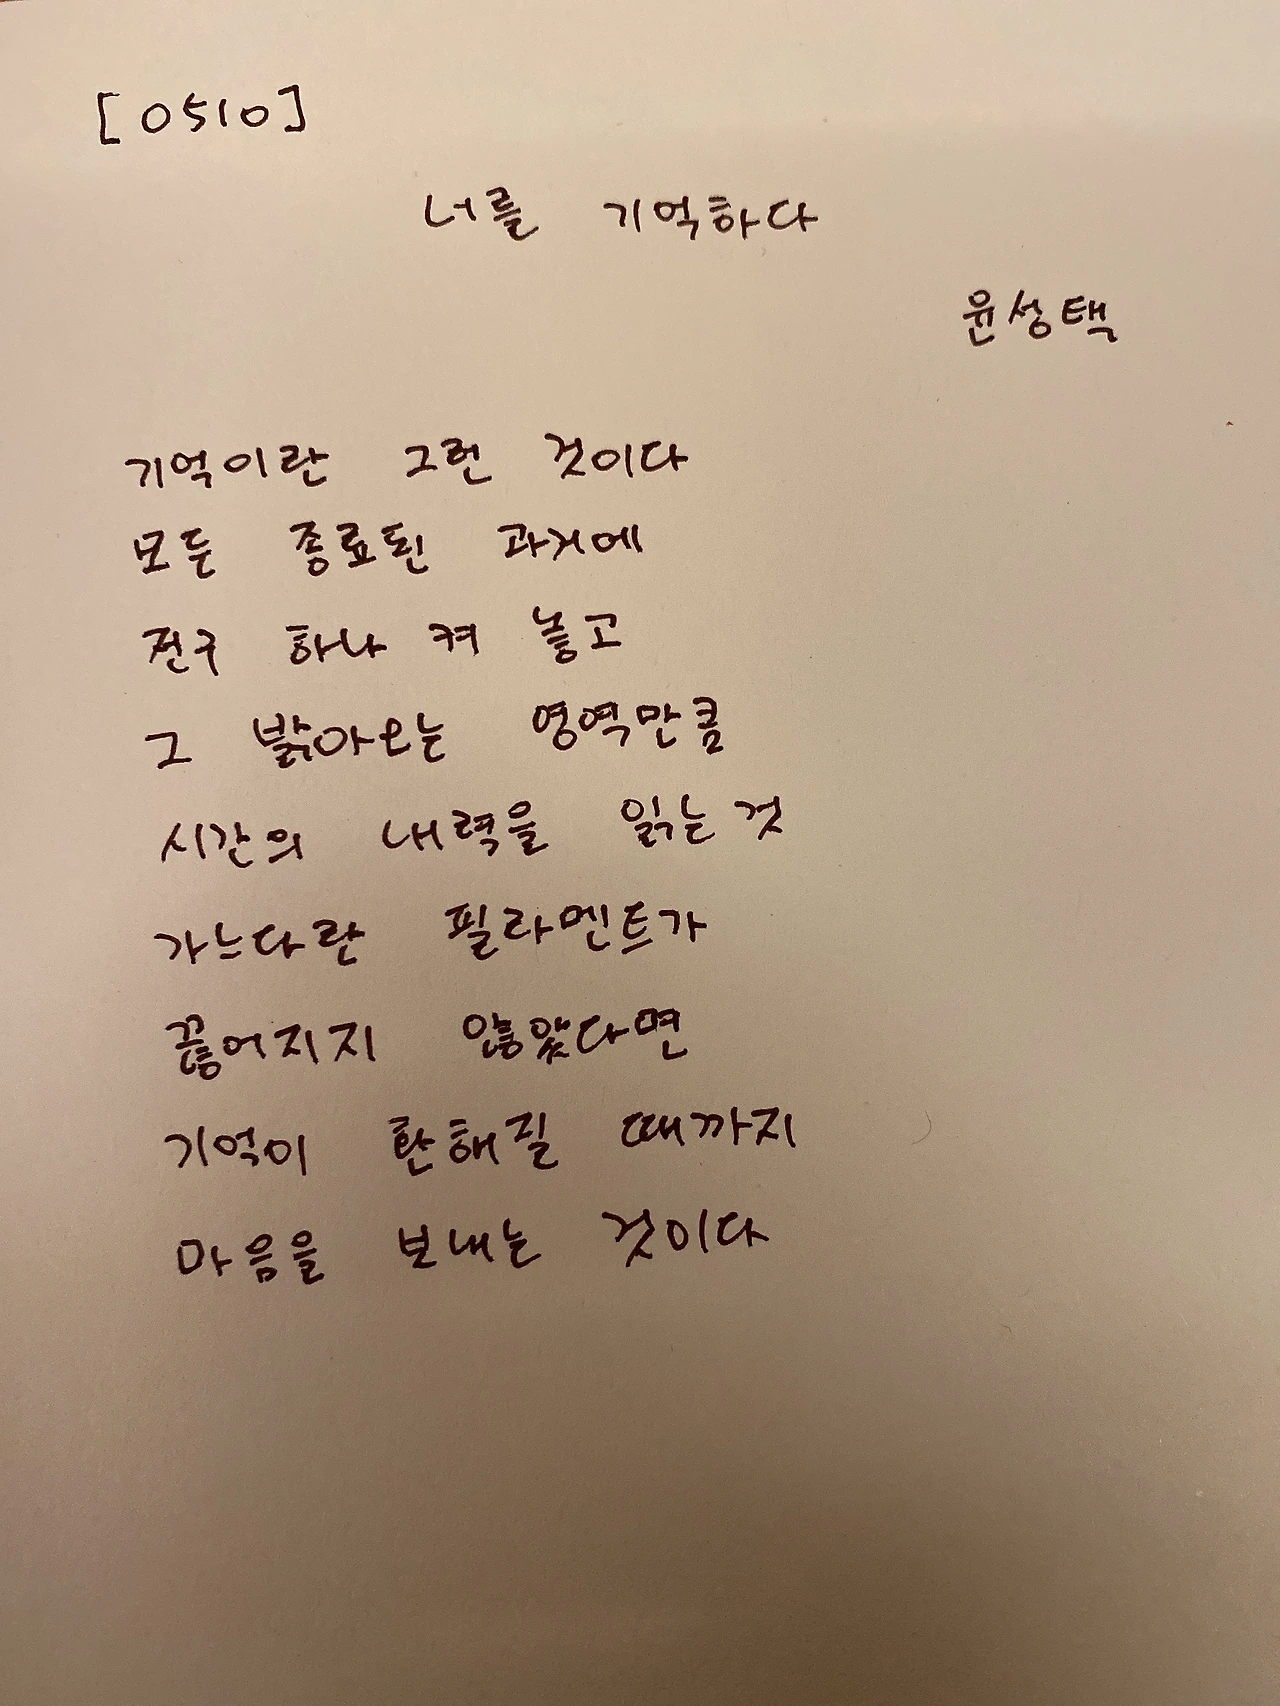 [0510]
너를 기억하다
윤성택
기억이란 그런 것이다
모든 종료된 과거에
전구 하나 켜 놓고
그 밝아오는 영역만큼
시간의 내력을 읽는 것
가느다란 필라멘트가
끊어지지 않았다면
기억이 환해질 때까지
마음을 보내는 것이다